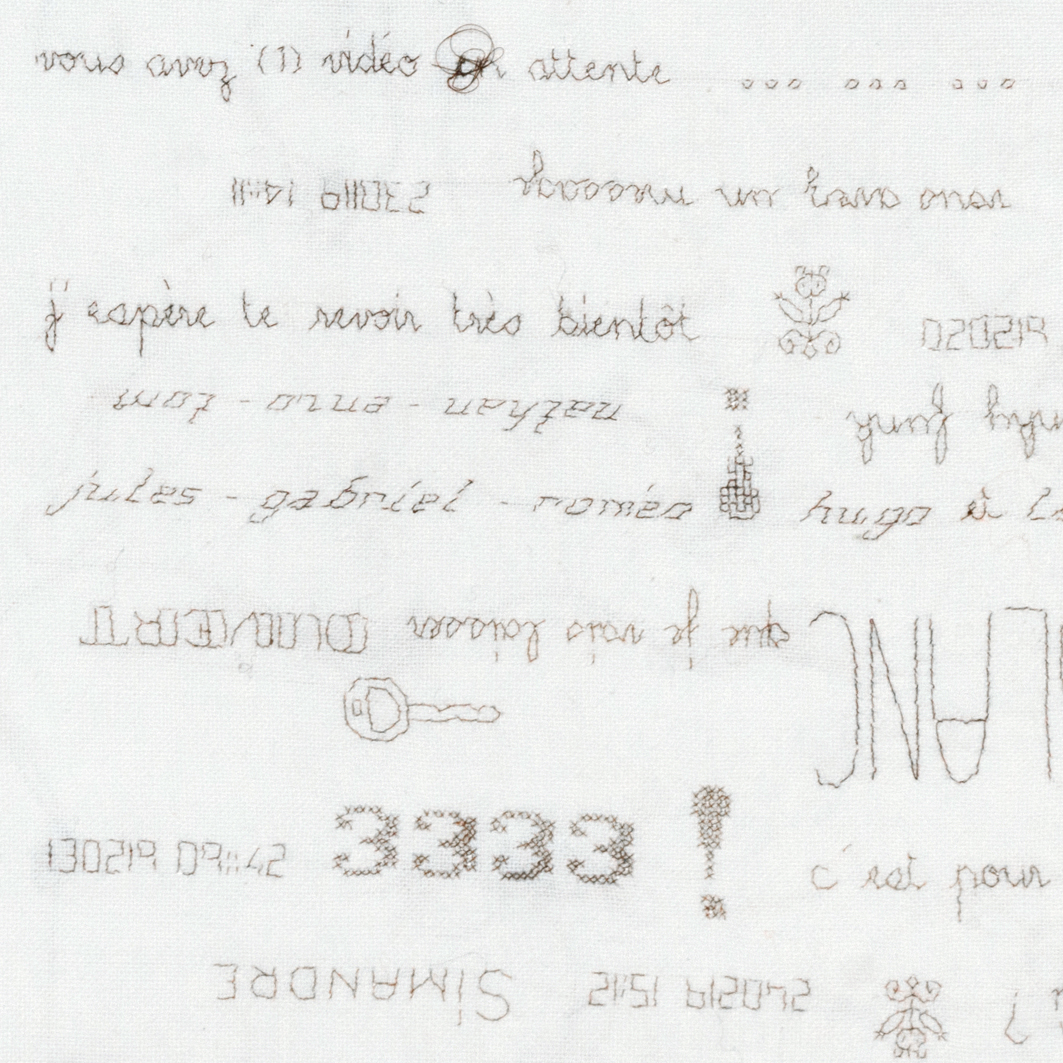 vous avez (1) vidéo en attente ... ... ...
vous avez un
230119 14:11
j'espère te revoir très bientôt
020219
nathan - enzo - tom
jules - gabriel - roméo
hugo à
que je vais laisser OUVERT
LANC
130219 09:42
3333 !
c'est pour
240219 15:12
SIMANDRE